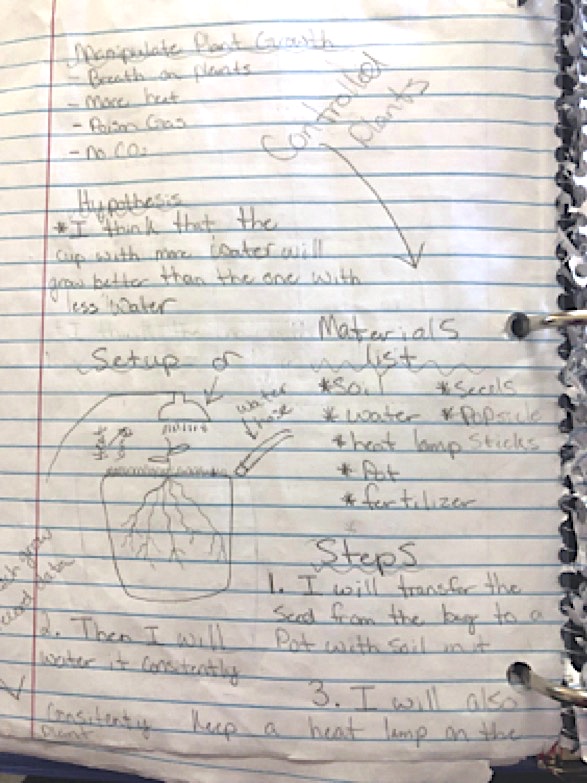 Manipulate Plant Growth
- Breath on plants
- More heat
- Poison Gas
- No CO2
Controlled
Plants
Hypothesis
*I think that the
cup with more water will
grow better than the one with
less water
Materials
list
*Soil
*Seeds
*water
*Popsicle
Sticks
*heat lamp
*Pot
*fertilizer
Setup
water
hose
Steps
1. I will transfer the
Seed from the bag to a
Pot with soil in it
2. Then I will
water it consitently
3. I will also
Consitenty Keep a heat lamp on the
plant
grow
data